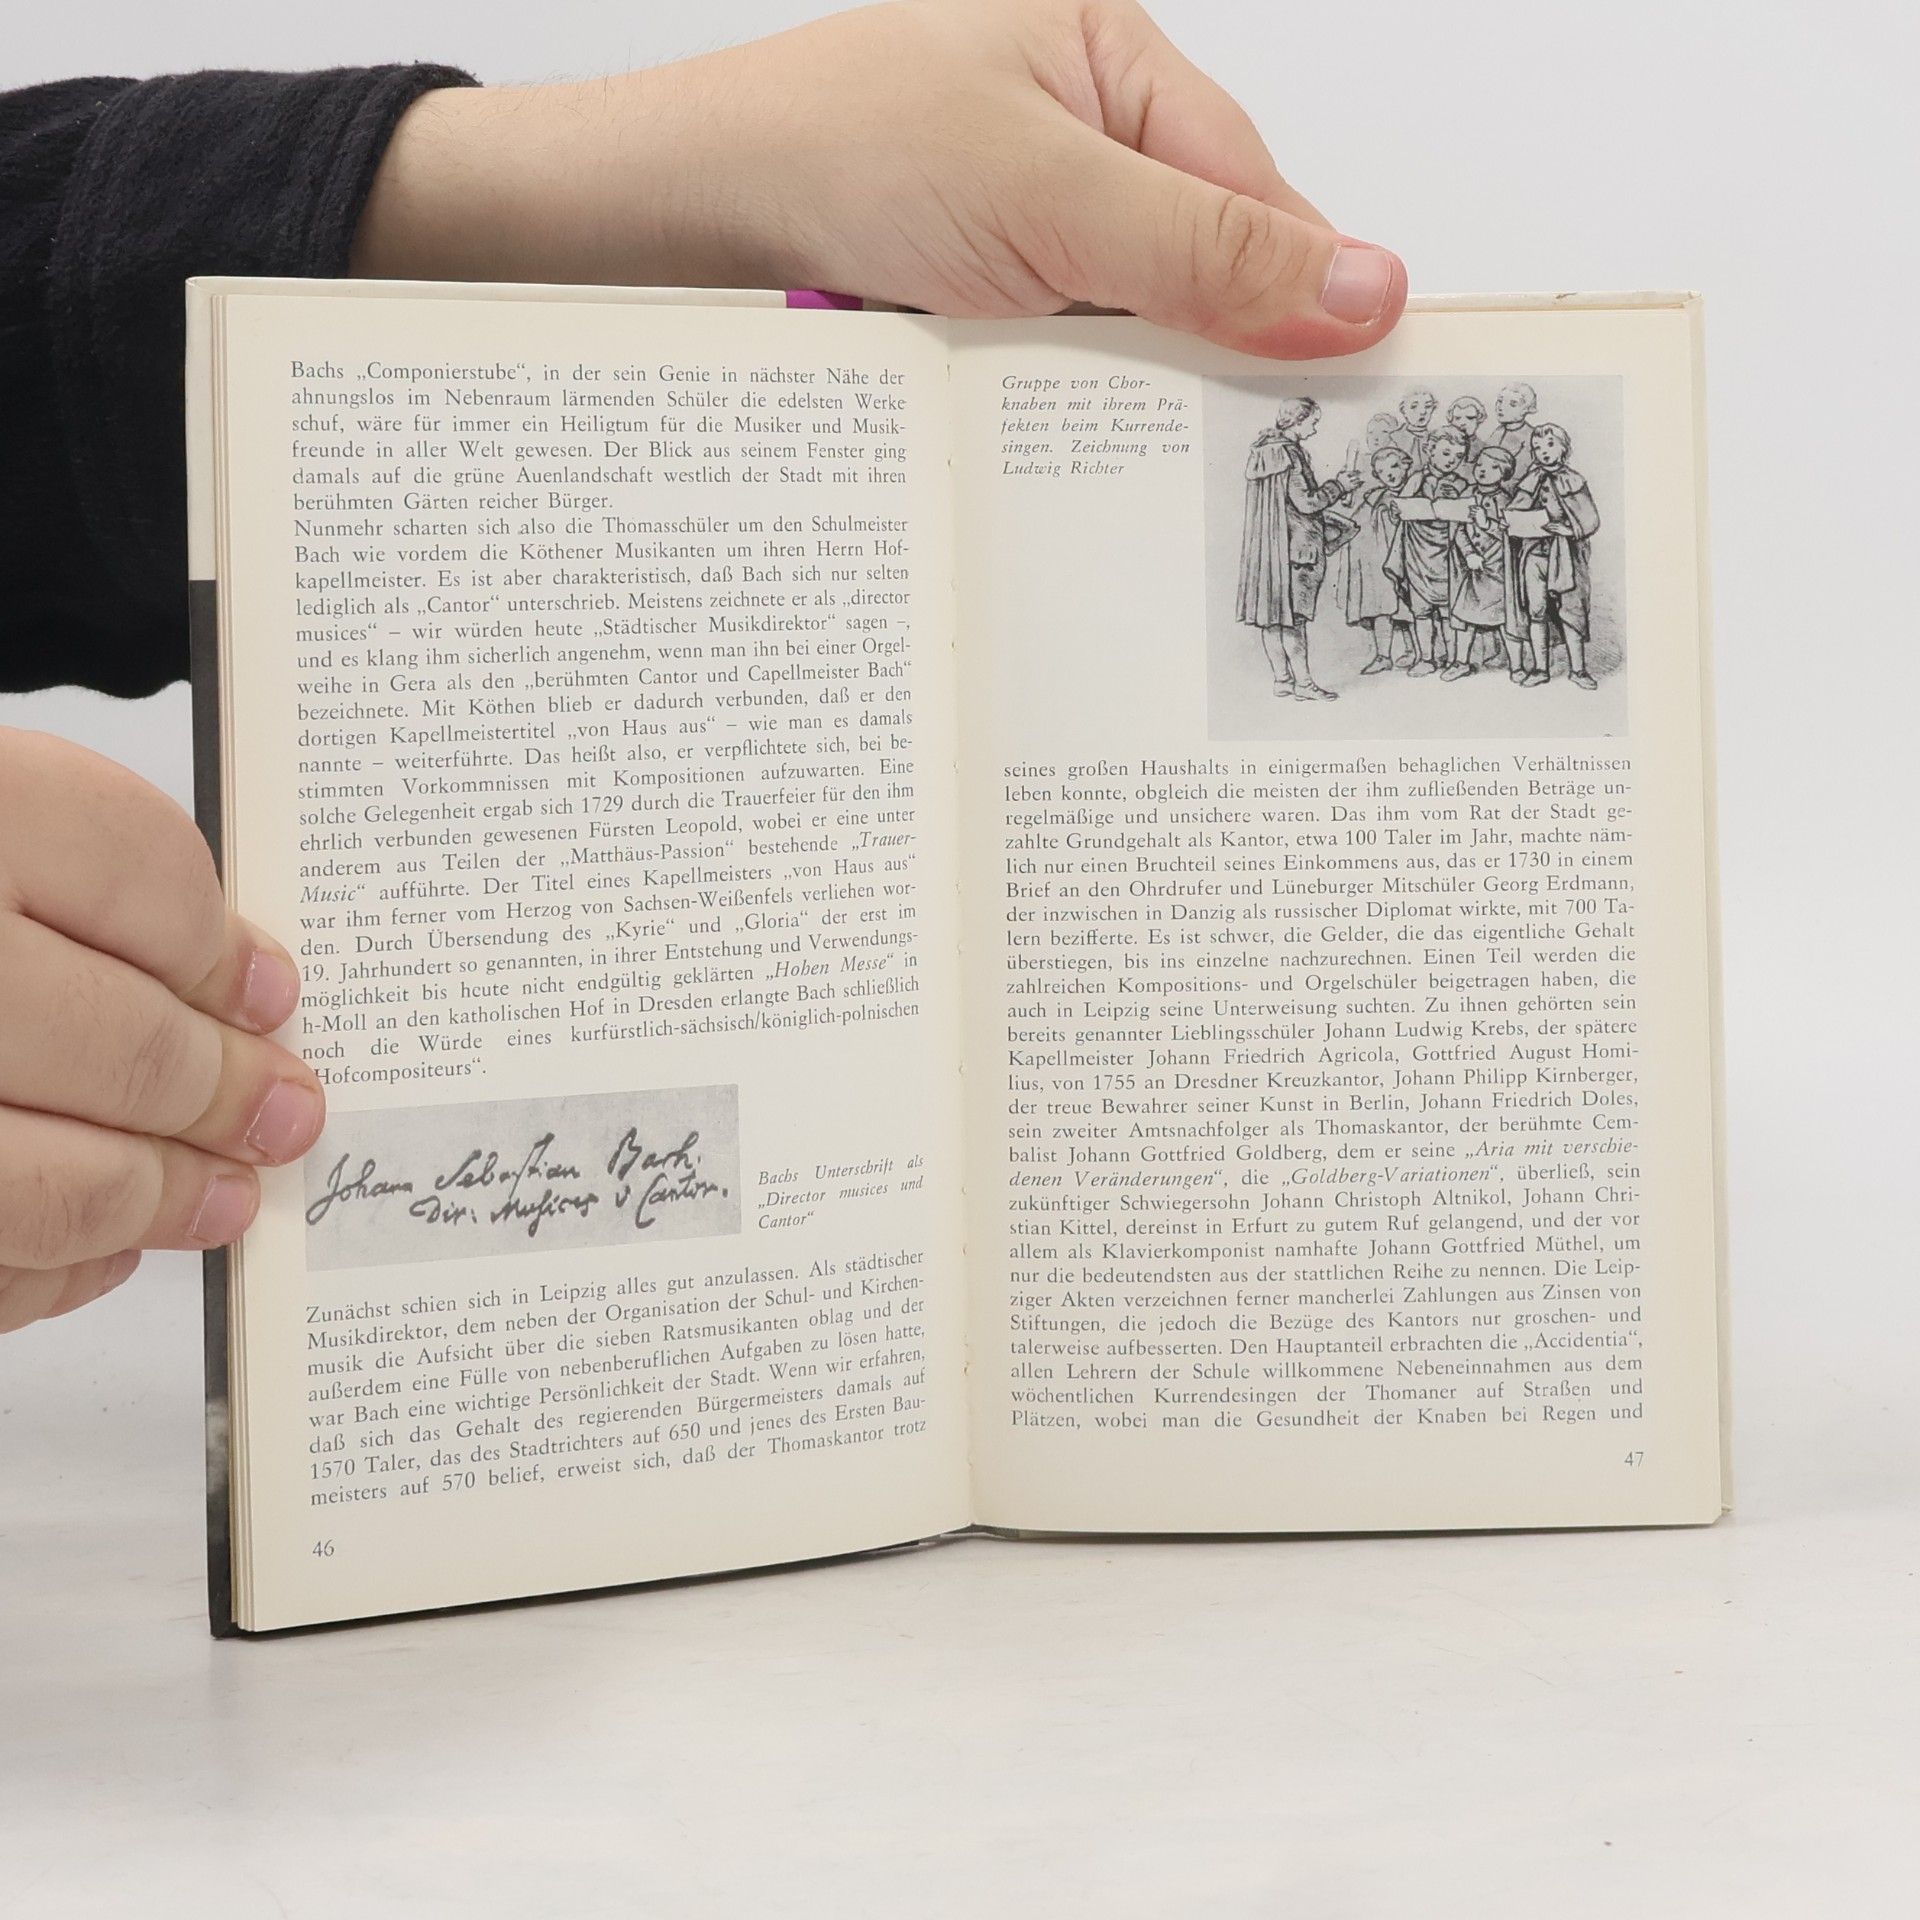 Bachs „Componierstube“, in der sein Genie in nächster Nähe der
ahnungslos im Nebenraum lärmenden Schüler die edelsten Werke
schuf, wäre für immer ein Heiligtum für die Musiker und Musik-
freunde in aller Welt gewesen. Der Blick aus seinem Fenster ging
damals auf die grüne Auenlandschaft westlich der Stadt mit ihren
berühmten Gärten reicher Bürger.
Nunmehr scharten sich also die Thomasschüler um den Schulmeister
Bach wie vordem die Köthener Musikanten um ihren Herrn Hof-
kapellmeister. Es ist aber charakteristisch, daß Bach sich nur selten
lediglich als „Cantor“ unterschrieb. Meistens zeichnete er als „director
musices“ – wir würden heute „Städtischer Musikdirektor“ sagen –,
und es klang ihm sicherlich angenehm, wenn man ihn bei einer Orgel-
weihe in Gera als den „berühmten Cantor und Capellmeister Bach“
bezeichnete. Mit Köthen blieb er dadurch verbunden, daß er den
dortigen Kapellmeistertitel „von Haus aus“ – wie man es damals
nannte – weiterführte. Das heißt also, er verpflichtete sich, bei be-
stimmten Vorkommnissen mit Kompositionen aufzuwarten. Eine
solche Gelegenheit ergab sich 1729 durch die Trauerfeier für den ihm
ehrlich verbunden gewesenen Fürsten Leopold, wobei er eine unter
anderem aus Teilen der „Matthäus-Passion“ bestehende „Trauer-
Music“ aufführte. Der Titel eines Kapellmeisters „von Haus aus“
war ihm ferner vom Herzog von Sachsen-Weißenfels verliehen wor-
den. Durch Übersendung des „Kyrie“ und „Gloria“ der erst im
19. Jahrhundert so genannten, in ihrer Entstehung und Verwendungs-
möglichkeit bis heute nicht endgültig geklärten „Hohen Messe“ in
h-Moll an den katholischen Hof in Dresden erlangte Bach schließlich
noch die Würde eines kurfürstlich-sächsisch/königlich-polnischen
Hofcompositeurs“.
Johann Sebastian Bach.
Dir: Musices u Cantor.
Bachs Unterschrift als
„Director musices und
Cantor“
Zunächst schien sich in Leipzig alles gut anzulassen. Als städtischer
Musikdirektor, dem neben der Organisation der Schul- und Kirchen-
musik die Aufsicht über die sieben Ratsmusikanten oblag und der
außerdem eine Fülle von nebenberuflichen Aufgaben zu lösen hatte,
war Bach eine wichtige Persönlichkeit der Stadt. Wenn wir erfahren,
daß sich das Gehalt des regierenden Bürgermeisters damals auf
1570 Taler, das des Stadtrichters auf 650 und jenes des Ersten Bau-
meisters auf 570 belief, erweist sich, daß der Thomaskantor trotz
46
Gruppe von Chor-
knaben mit ihrem Prä-
fekten beim Kurrende-
singen. Zeichnung von
Ludwig Richter
seines großen Haushalts in einigermaßen behaglichen Verhältnissen
leben konnte, obgleich die meisten der ihm zufließenden Beträge un-
regelmäßige und unsichere waren. Das ihm vom Rat der Stadt ge-
zahlte Grundgehalt als Kantor, etwa 100 Taler im Jahr, machte näm-
lich nur einen Bruchteil seines Einkommens aus, das er 1730 in einem
Brief an den Ohrdrufer und Lüneburger Mitschüler Georg Erdmann,
der inzwischen in Danzig als russischer Diplomat wirkte, mit 700 Ta-
lern bezifferte. Es ist schwer, die Gelder, die das eigentliche Gehalt
überstiegen, bis ins einzelne nachzurechnen. Einen Teil werden die
zahlreichen Kompositions- und Orgelschüler beigetragen haben, die
auch in Leipzig seine Unterweisung suchten. Zu ihnen gehörten sein
bereits genannter Lieblingsschüler Johann Ludwig Krebs, der spätere
Kapellmeister Johann Friedrich Agricola, Gottfried August Homi-
lius, von 1755 an Dresdner Kreuzkantor, Johann Philipp Kirnberger,
der treue Bewahrer seiner Kunst in Berlin, Johann Friedrich Doles,
sein zweiter Amtsnachfolger als Thomaskantor, der berühmte Cem-
balist Johann Gottfried Goldberg, dem er seine „Aria mit verschie-
denen Veränderungen“, die „Goldberg-Variationen“, überließ, sein
zukünftiger Schwiegersohn Johann Christoph Altnikol, Johann Chri-
stian Kittel, dereinst in Erfurt zu gutem Ruf gelangend, und der vor
allem als Klavierkomponist namhafte Johann Gottfried Müthel, um
nur die bedeutendsten aus der stattlichen Reihe zu nennen. Die Leip-
ziger Akten verzeichnen ferner mancherlei Zahlungen aus Zinsen von
Stiftungen, die jedoch die Bezüge des Kantors nur groschen- und
talerweise aufbesserten. Den Hauptanteil erbrachten die „Accidentia“,
allen Lehrern der Schule willkommene Nebeneinnahmen aus dem
wöchentlichen Kurrendesingen der Thomaner auf Straßen und
Plätzen, wobei man die Gesundheit der Knaben bei Regen und
47